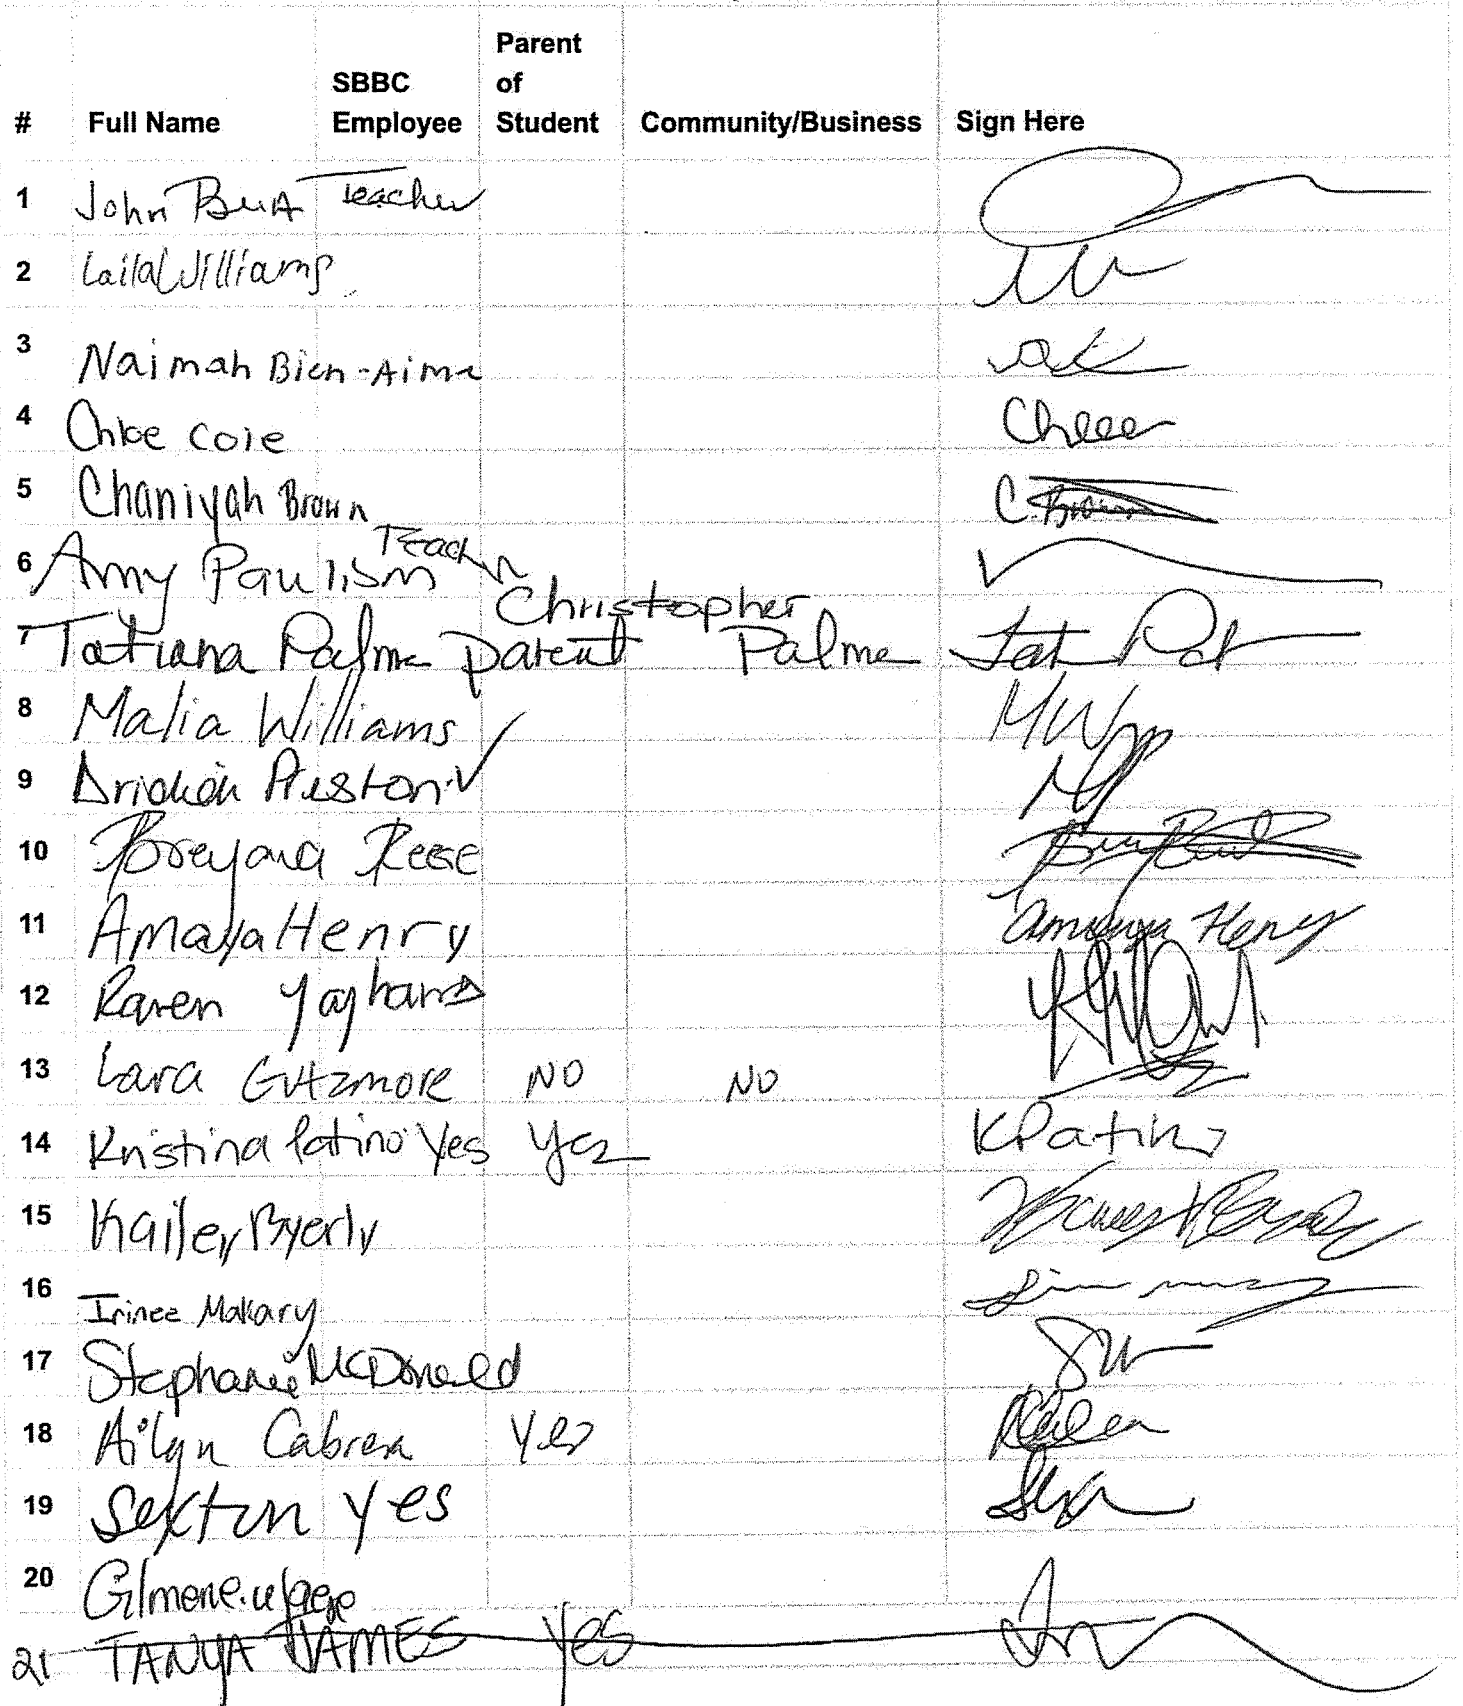 # Full Name SBBC Employee Parent of Student Community/Business Sign Here
1 John Teacher
2 Laila Williams
3 Naimah Bien-Aime
4 Chloe Coie Chloe
5 Chaniyah Brown C. Brown
6 Amy Teacher
7 Tatiana Palma parent Christopher Palma
8 Malia Williams MW
9 Preston
10 Breyana Reese
11 Amaya Henry Amaya Henry
12 Raven
13 Lara Gutzmore NO NO
14 Kristina Patino Yes Yes K Patino
15 Kailey Byerly
16 Irinee Makary
17 Stephanie McDonald
18 Ailyn Cabrera Yes
19 Sexton Yes
20 Gilmone
21 TANYA JAMES Yes